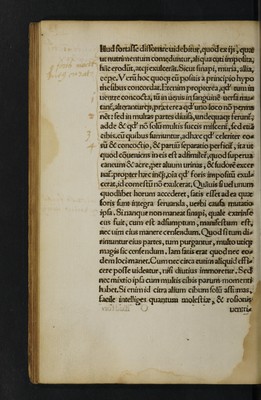 Illud fortasse dissentire videbitur, quod ex ijs, quæ
ut nutrimentum comeduntur, aliqua cuti imposita,
hāc erodūt, acq; exulcerāt. Sicut sinapi, muria, allia,
cepe. Verū hoc quoq; cū positis à principio hypo
thesibus concordat. Etenim propterea, quòd
ventre concocta, tū in uenis in sanguinē
tant, alteranturq́;, præterea quòd uno loco nō perma
net: sed in multas partes diuisa, undequaq; ferunt,
adde & quòd nō solū multis succis misceri, sed etiā
cibis, cū quibus sumuntur, ad hæc quòd celeriter eo
rū & concoctio, & partiū separatio perficit, ita ut
quod cōueniens in eis est adsimilet, quod superua
caneum & acre, per aluum urinas, & sudorē excer
nat: propter hæc
cerat, id comestū nō exulcerat. Quāuis si uel unum
quodlibet horum accederet, satis esset ad ea quæ
foris sunt integra seruanda, uerbi causa mutatio
ipsa. Si nanque non maneat sinapi, quale extrinse
cus fuit, cum est adsumptum, manifestum est,
nec uim eius manere censendum. Quod si tum di
rimuntur eius partes, tum purgantur, multo utiq;
magis sic censendum. Iam satis erat quod nec eo-
dem loci manet. Cum nec circa cutim aliquid effi-
cere posse uideatur, nisi diutius immoretur. Sed
nec mixtio ipsa cum multis cibis parum momenti
habet. Si enim id citra alium cibum solū assumas,
facile intelliges quantum molestiæ, & rosionis